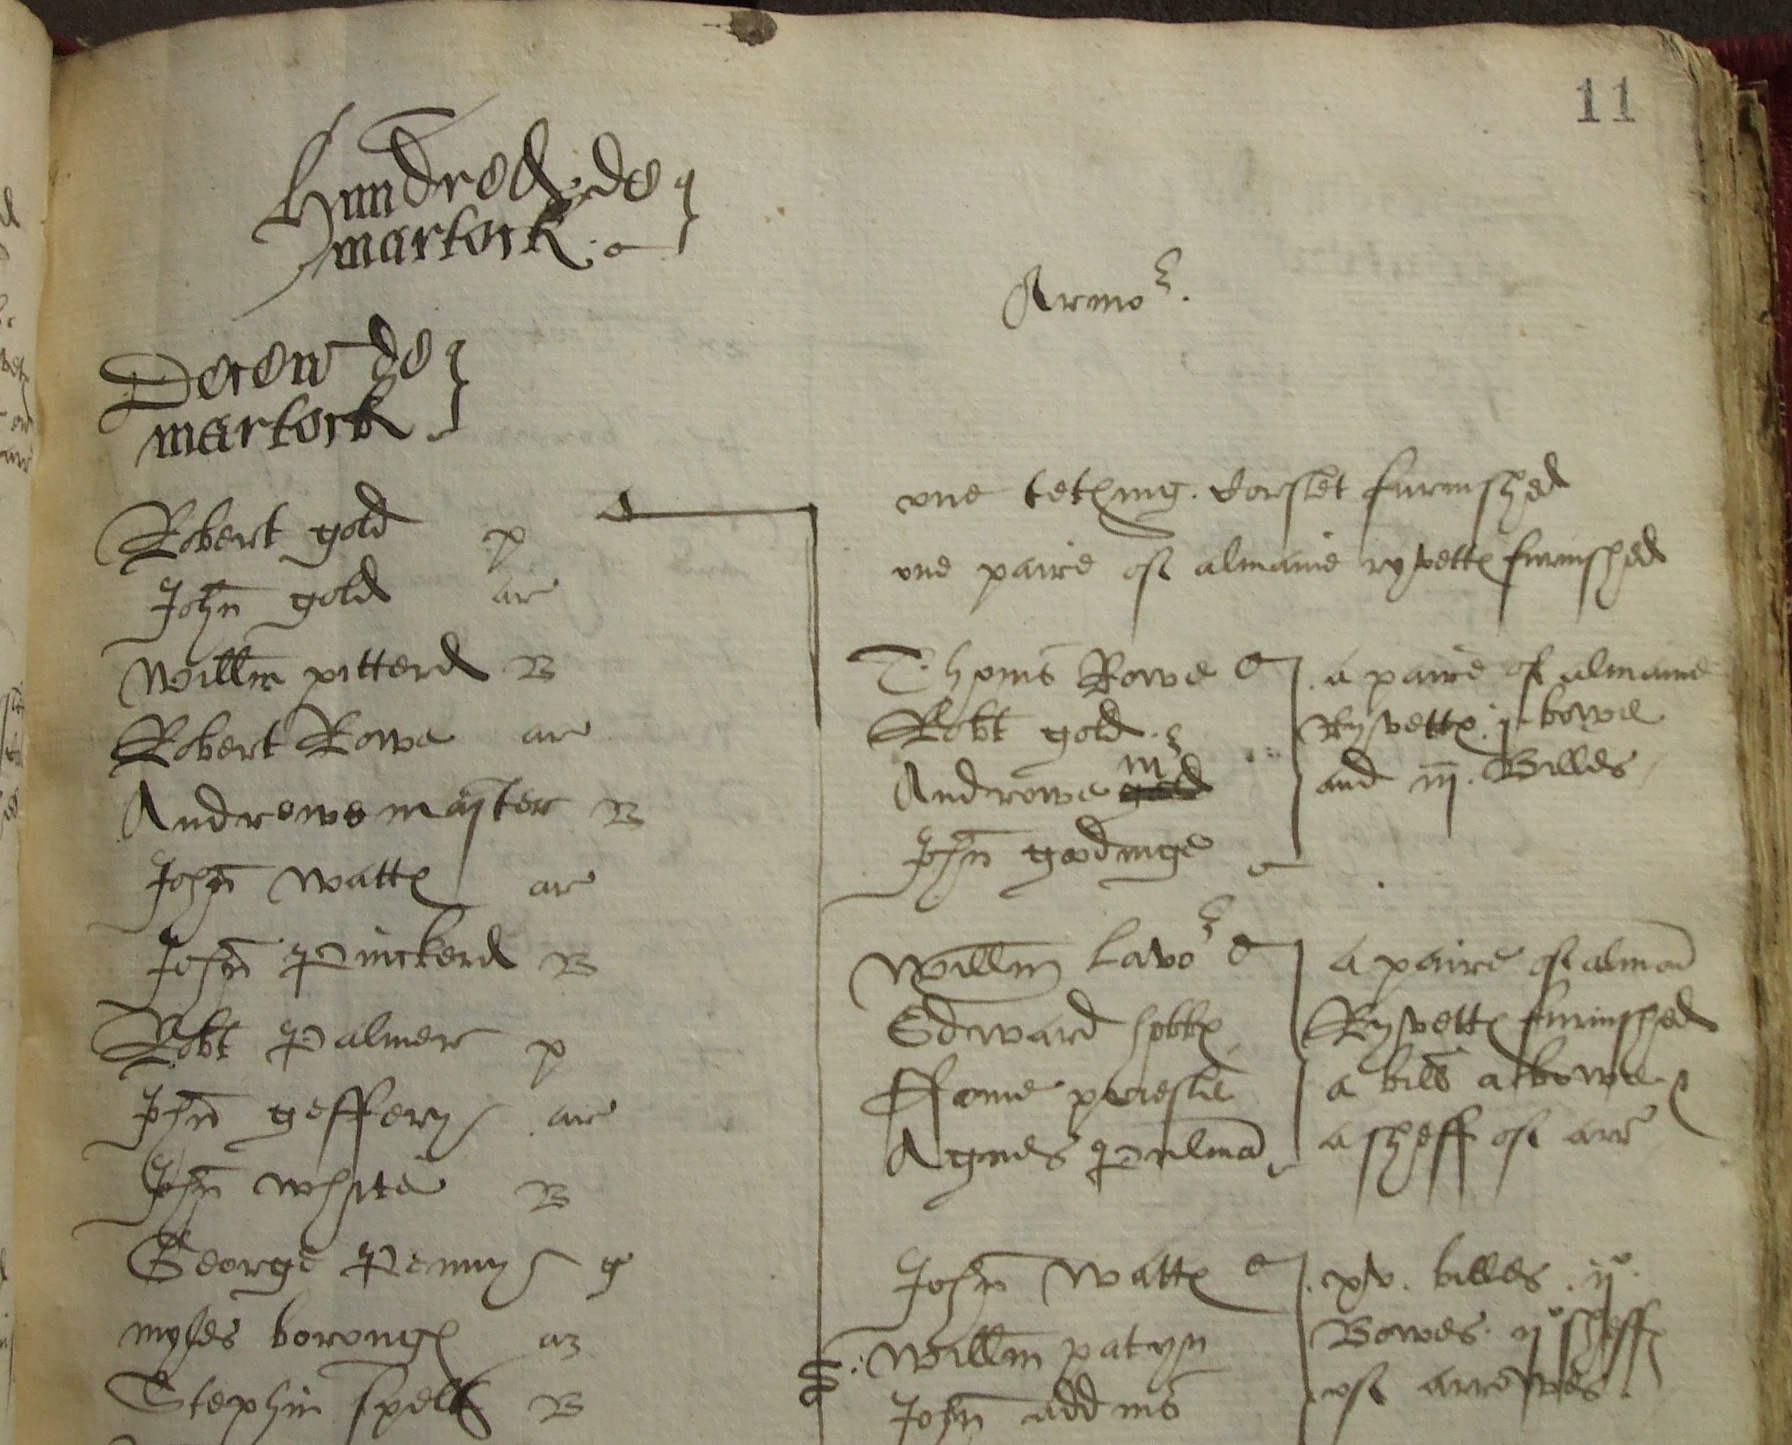 11
Hundred de
martock
Armor.
Decen de
martock
Robert gold p
John gold ar
Willm pitterd B
Robert Rowe ar
Andrewe master B
John Watts ar
John Pinckerd B
Robt Palmer p
John geffery ar
John white B
George Penny g
myles borough ar
Stephin spelt B
one tething corslet furnished
one paire of almaine ryvettes furnished
Thoms Rowe
Robt gold
Andrewe gold m
John goodinge
a paire of almaine
Ryvettes j bowe
and iij Billes
Willm Lavor
Edward
Agnes Pulman
a paire of alman
Ryvettes furnished
a bill a bowe
a sheff of arr
John Watts
Willm patyn
John addms
xv. billes ij
Bowes ij sheffes
of arrowes